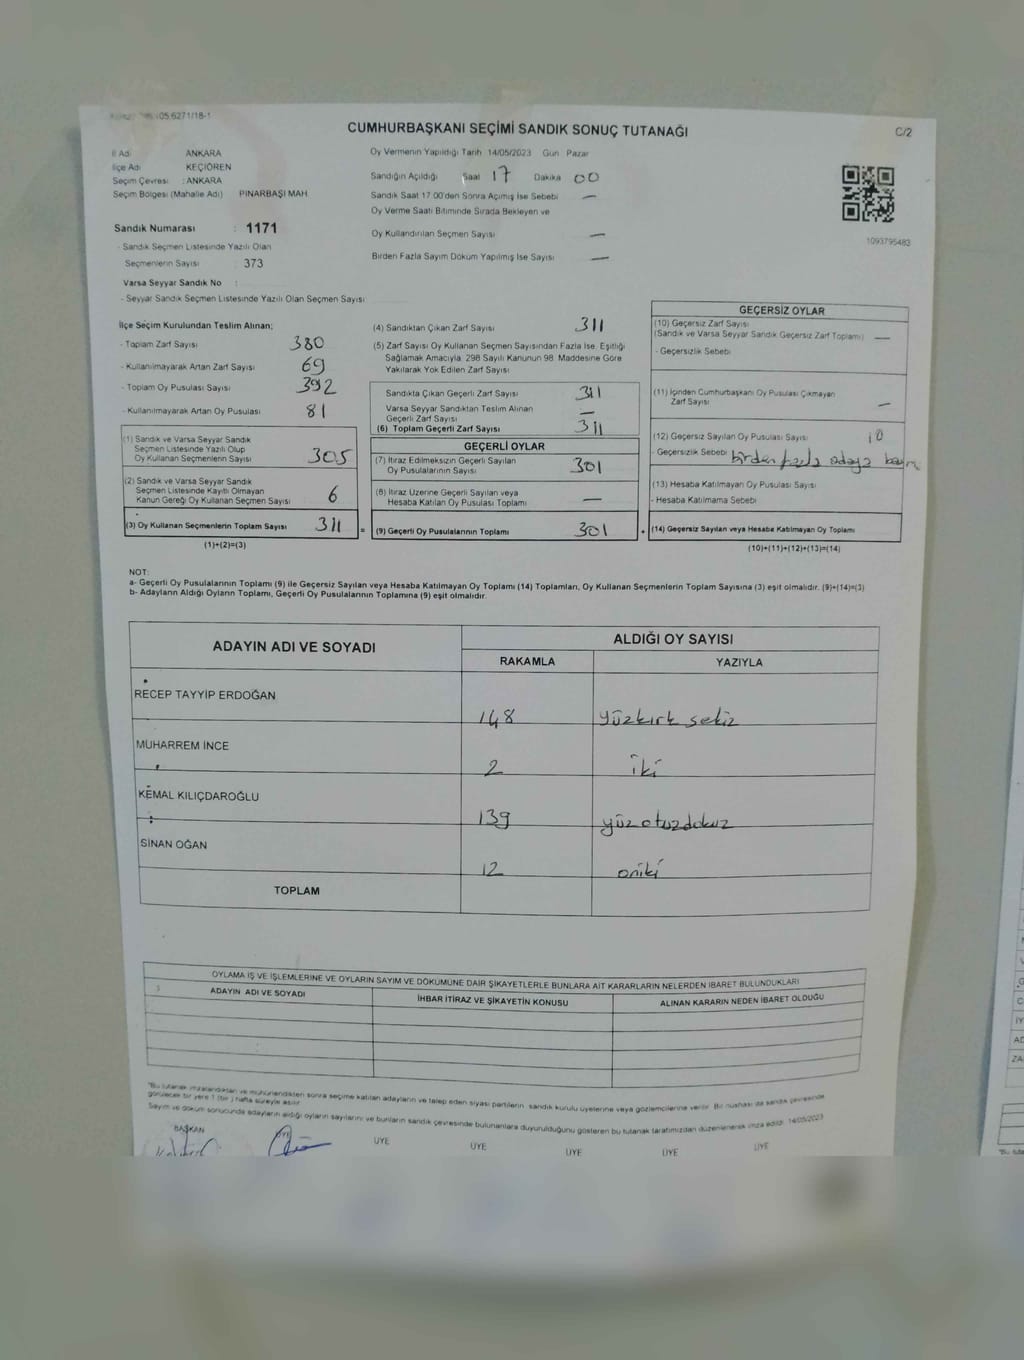 05.6271/18-1
CUMHURBAŞKANI SEÇİMİ SANDIK SONUÇ TUTANAĞI
C/2
İl Adı ANKARA
İlçe Adı KEÇİÖREN
Seçim Çevresi : ANKARA
Seçim Bölgesi (Mahalle Adı) PINARBAŞI MAH.
Oy Vermenin Yapıldığı Tarih 14/05/2023 Gün Pazar
Sandığın Açıldığı Saat 17 Dakika 00
Sandık Saat 17.00'den Sonra Açımış İse Sebebi —
Oy Verme Saati Bitiminde Sırada Bekleyen ve
Oy Kullandırılan Seçmen Sayısı —
Birden Fazla Sayım Döküm Yapılmış İse Sayısı —
1093795483
Sandık Numarası : 1171
- Sandık Seçmen Listesinde Yazılı Olan
Seçmenlerin Sayısı : 373
Varsa Seyyar Sandık No :
- Seyyar Sandık Seçmen Listesinde Yazılı Olan Seçmen Sayısı
İlçe Seçim Kurulundan Teslim Alınan;
- Toplam Zarf Sayısı 380
- Kullanılmayarak Artan Zarf Sayısı 69
- Toplam Oy Pusulası Sayısı 392
- Kullanılmayarak Artan Oy Pusulası 81
(1) Sandık ve Varsa Seyyar Sandık
Seçmen Listesinde Yazılı Olup
Oy Kullanan Seçmenlerin Sayısı 305
(2) Sandık ve Varsa Seyyar Sandık
Seçmen Listesinde Kayıtlı Olmayan
Kanun Gereği Oy Kullanan Seçmen Sayısı 6
(3) Oy Kullanan Seçmenlerin Toplam Sayısı 311 =
(1)+(2)=(3)
(4) Sandıktan Çıkan Zarf Sayısı 311
(5) Zarf Sayısı Oy Kullanan Seçmen Sayısından Fazla İse, Eşitliği
Sağlamak Amacıyla, 298 Sayılı Kanunun 98. Maddesine Göre
Yakılarak Yok Edilen Zarf Sayısı
Sandıkta Çıkan Geçerli Zarf Sayısı 311
Varsa Seyyar Sandıktan Teslim Alınan
Geçerli Zarf Sayısı —
(6) Toplam Geçerli Zarf Sayısı 311
GEÇERLİ OYLAR
(7) İtiraz Edilmeksizin Geçerli Sayılan
Oy Pusulalarının Sayısı 301
(8) İtiraz Üzerine Geçerli Sayılan veya
Hesaba Katılan Oy Pusulası Toplamı —
(9) Geçerli Oy Pusulalarının Toplamı 301 +
GEÇERSİZ OYLAR
(10) Geçersiz Zarf Sayısı
(Sandık ve Varsa Seyyar Sandık Geçersiz Zarf Toplamı) —
- Geçersizlik Sebebi
(11) İçinden Cumhurbaşkanı Oy Pusulası Çıkmayan
Zarf Sayısı —
(12) Geçersiz Sayılan Oy Pusulası Sayısı 10
- Geçersizlik Sebebi birden fazla adaya
(13) Hesaba Katılmayan Oy Pusulası Sayısı
- Hesaba Katılmama Sebebi
(14) Geçersiz Sayılan veya Hesaba Katılmayan Oy Toplamı
(10)+(11)+(12)+(13)=(14)
NOT:
a- Geçerli Oy Pusulalarının Toplamı (9) ile Geçersiz Sayılan veya Hesaba Katılmayan Oy Toplamı (14) Toplamları, Oy Kullanan Seçmenlerin Toplam Sayısına (3) eşit olmalıdır. (9)+(14)=(3)
b- Adayların Aldığı Oyların Toplamı, Geçerli Oy Pusulalarının Toplamına (9) eşit olmalıdır.
ADAYIN ADI VE SOYADI
ALDIĞI OY SAYISI
RAKAMLA YAZIYLA
RECEP TAYYİP ERDOĞAN 148 yüzkırk sekiz
MUHARREM İNCE 2 iki
KEMAL KILIÇDAROĞLU 139 yüzotuzdokuz
SİNAN OĞAN 12 oniki
TOPLAM
OYLAMA İŞ VE İŞLEMLERİNE VE OYLARIN SAYIM VE DÖKÜMÜNE DAİR ŞİKAYETLERLE BUNLARA AİT KARARLARIN NELERDEN İBARET BULUNDUKLARI
ADAYIN ADI VE SOYADI İHBAR İTİRAZ VE ŞİKAYETİN KONUSU ALINAN KARARIN NEDEN İBARET OLDUĞU
*Bu tutanak imzalandıktan ve mühürlendikten sonra seçime katılan adayların ve talep eden siyasi partilerin sandık kurulu üyelerine veya gözlemcilerine verilir. Bir nüshası da sandık çevresinde
görülecek bir yere 1 (bir) hafta süreyle asılır.
Sayım ve döküm sonucunda adayların aldığı oyların sayılarını ve bunların sandık çevresinde bulunanlara duyurulduğunu gösteren bu tutanak tarafımızdan düzenlenerek imza edildi. 14/05/2023
BAŞKAN ÜYE ÜYE ÜYE ÜYE ÜYE ÜYE